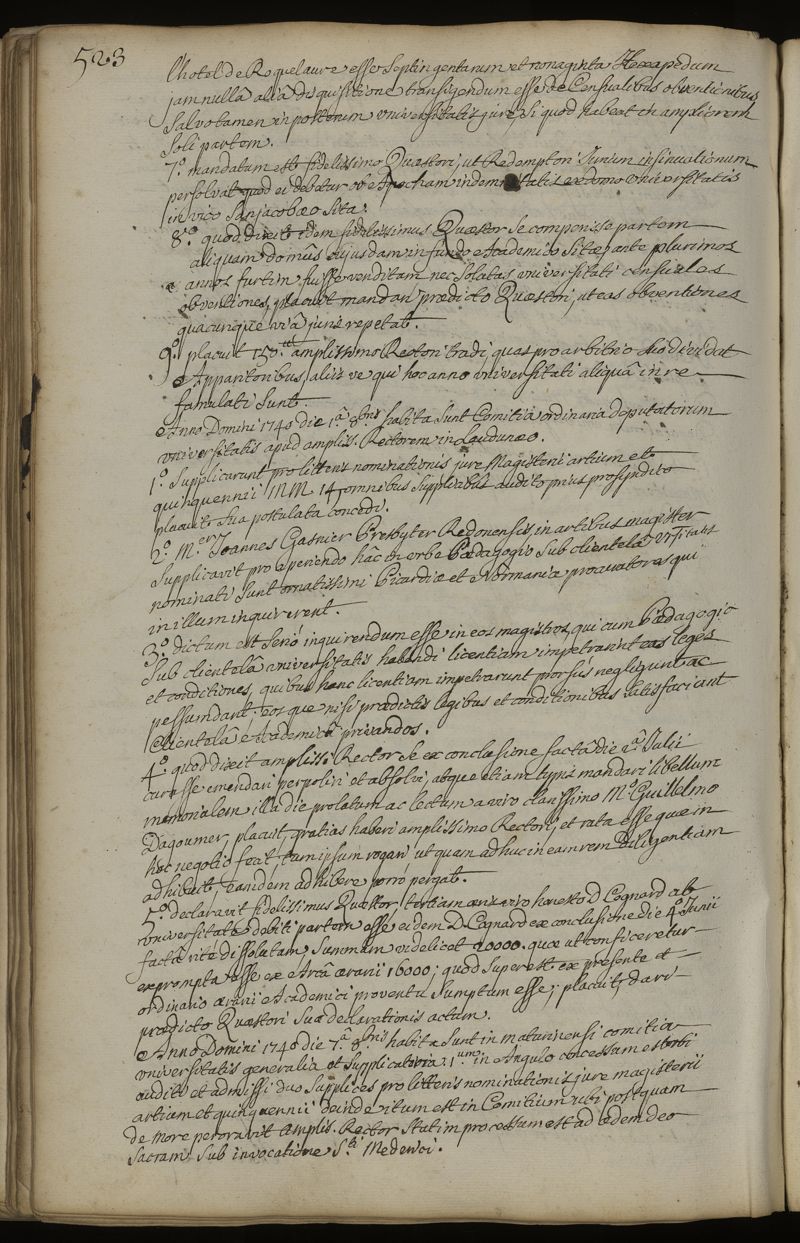 523
l'hotel de Roquelaure esse septingentarum et nonaginta Hexapedum
jam nullâ aliâ disquisitione transigendum esse de Censualibus obventionibus
salvo tamen in posterum universitatis jure si quod habeat in ampliorem
soli partem.
7.° mandatum est fidelissimo Quæstori, ut Redemptori Jurium insinuationum
persolvat quod ei debetur ob Apocham indemnitatis ex domo Universitatis
in vico Sanjacobæo sita.
8.° quod dixit idem fidelissimus Quæstor se comperisse partem
aliquam domûs cujusdam in fundo Academico sitæ ante plurimos
annos furtim fuisse venditam nec solutas universitati censuales
obventiones, placuit mandari prædicto Quæstori, ut eas obventiones
quacunque viâ juris repetat.
9.° placuit 150.tt amplissimo Rectori tradi, quas pro arbitrio dividat
Apparitoribus, aliis ve qui hoc anno universitati aliquâ in re
famulati sunt.
Anno Domini 1740 die 1.a 8bris habita sunt Comitia ordinaria deputatorum
universitatis apud ampliss. Rectorem in Laudunæo.
1.° Supplicarunt pro litteris nominationis jure Magisterii artium et
quinquennii MM. 14, omnibus supplicibus audito prius pro syndico
placuit sua postulata concedi.
2.° M.er Joannes Gasnier Presbyter Redonensis, in artibus magister
supplicavit pro aperiendo hâc in urbe Pædagogio sub clientelâ universitatis
nominati sunt ornatissimi Picardiæ et Normaniæ procuratores qui
in illum inquirerent.
3.° dictum est seriò inquirendum esse in eos magistros, qui cum Pædagogio
sub clientelâ universitatis habendi licentiam impetrarint eas leges
et conditiones, quibus hanc licentiam impetrarunt prorsus negligunt ac
pessumdant: eos que nisi prædictis legibus et conditionibus satisfaciant
Clientelâ Academicâ privandos.
4.° quod dixit ampliss. Rector se ex conclusione factâ die 2.a Julii
curasse emendari perpoliri et absolvi, atque etiam typis mandari libellum
memorialem illa die prolatum ac lectum a viro clarissimo M.° Guillelmo
Dagoumer, placuit, gratias haberi amplissimo Rectori, et rata esse quæ in
hoc negotio fecit, tum ipsum rogari ut quam adhuc in eam rem diligentiam
adhibuit, eandem adhibere porro pergat.
5.° declaravit fidelissimus Quæstor tertiam viro honesto D. Cognard ab
universitate debiti partem esse eidem D. Cognard ex conclusione die 4.a Junii
factâ rite dissolutam, summam videlicet 20000. quæ ut conficeretur
exprompta esse ex Arcâ ærarii 16000; quod superest ex præsente et
ordinario ærarii Academici proventu sumptum esse; placuit, dari
prædicto Quæstori suæ declarationis actum.
Anno Domini 1740 die 7.a 8bris habita sunt in maturinensi comitia
universitatis generalia et supplicatoria. 1.um in Angulo concessum est ubi
auditi et admissi duo supplices pro litteris nominationis jure magisterii
artium et quinquennii deinde itum est in Comitium ubi postquam
de more peroravit amplis. Rector statim processum est ad ædem deo
sacram sub invocatione S.ti Mederici.